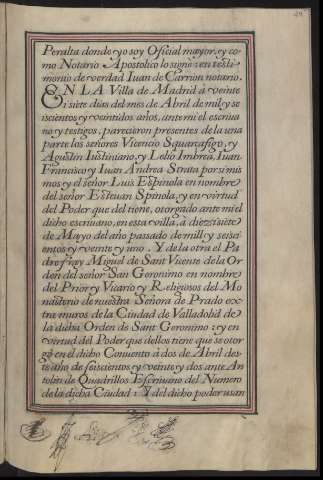 Peralta donde yo soy Oficial mayor, y co-
mo Notario Apostolico lo signe: en testi-
monio de verdad Iuan de Carrion notario.
EN LA Villa de Madrid à veinte
i siete dias del mes de Abril de mil y se
iscientos y veintidos años, ante mi el escriua
no y testigos, parecieron presentes de la una
parte los señores Vicencio Squarcafigo, y
Agustin Iustiniano, y Lelio Imbrea, Iuan
Francisco y Iuan Andrea Strata por si mis
mos y el señor Luis Espinola en nombre
del señor Esteuan Spinola, y en virtud
del Poder que del tiene, otorgado ante mi el
dicho escriuano, en esta villa, à diez i siete
de Mayo del año passado de mill y seisci-
entos y veinte y uno. Y de la otra el Pa
dre fray Miguel de Sant Vicente de la Or
den del señor San Geronimo en nombre
del Prior y Vicario y Religiosos del Mo
nasterio de nuestra Señora de Prado ex
tra muros de la Ciudad de Valladolid de
la dicha Orden de Sant Geronimo: y en
virtud del Poder que dellos tiene que se otor
gò en el dicho Conuento à dos de Abril des
te año de seiscientos y veinte y dos ante An
tolin de Quadrillos Escriuano del Numero
de la dicha Ciudad: Y del dicho poder usan